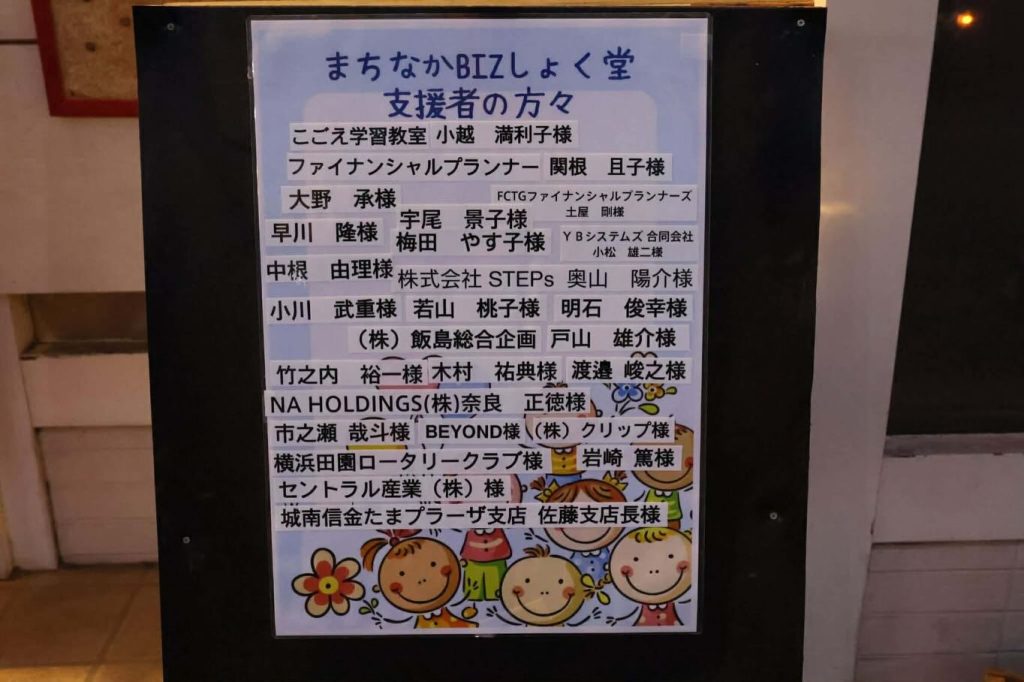 まちなかBIZしょく堂
支援者の方々
こごえ学習教室 小越　満利子様
ファイナンシャルプランナー 関根　且子様
大野　承様
FCTGファイナンシャルプランナーズ
土屋　剛様
早川　隆様
宇尾　景子様
梅田　やす子様
ＹＢシステムズ 合同会社
小松　雄二様
中根　由理様
株式会社 STEPs 奥山　陽介様
小川　武重様 若山　桃子様 明石　俊幸様
（株）飯島総合企画 戸山　雄介様
竹之内　裕一様 木村　祐典様 渡邉 峻之様
NA HOLDINGS(株)奈良　正徳様
市之瀬 哉斗様 BEYOND様（株）クリップ様
横浜田園ロータリークラブ様 岩崎 篤様
セントラル産業（株）様
城南信金たまプラーザ支店 佐藤支店長様